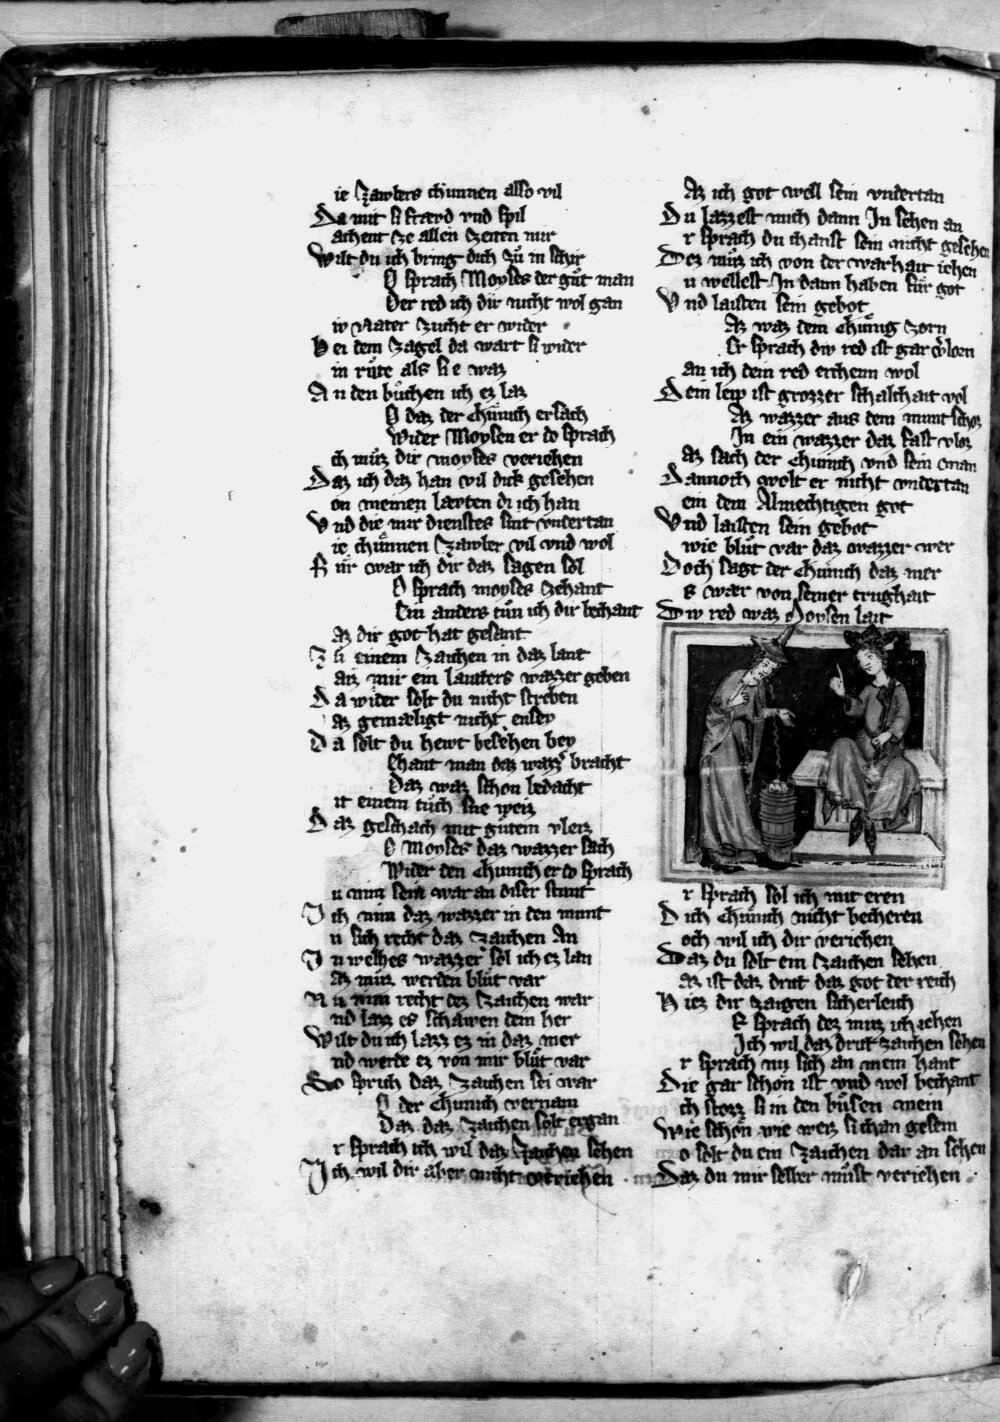 ie zawbers chunnen also vil
Da mit si fræwd vnd spil
achent ze allen zeiten mir
Wilt du ich bring dich zů in schir
O sprach Moyses der gůt man
Der red ich dir nicht wol gan
iv Nater zucht er wider
Bei dem zagel da wart si wider
in růte als si e waz
An den bůchen ich ez laz
O daz der Chůnich ersach
Wider Moysen er do sprach
ch můz dir moyses veriehen
Daz ich daz han vil dick gesehen
on meinen læwten di ich han
Vnd die mir dienstes sint vndertan
ie chůnnen zawber vil vnd wol
Fůr war ich dir daz sagen sol
O sprach moyses zehant
Ein anders tůn ich dir bechant
az dir got hat gesant
Zů einem zaichen in daz lant
aiz mir ein lauters wazzer geben
Da wider solt du nicht streben
az gemæligt nicht ensey
Da solt du hewt besehen bey
Chant man daz wazzer bracht
Daz waz schon bedacht
it einem tůch sne weiz
Daz geschach mit gůtem vleiz
O Moyses daz wazzer sach
Wider den Chunich er do sprach
u nim sein war an diser stunt
Ich nim daz wazzer in den munt
u sich recht daz zaichen An
In welhes wazzer sol ich ez lan
az můz werden blůt var
Nu nim recht dez zaichen war
nd lazz es schawen dein her
Wilt du ich lazz ez in daz mer
nd werde ez von mir blůt var
So sprich daz zaichen sei war
O der Chunich vernam
Daz daz zaichen solt ergan
r sprach ich wil daz zaichen sehen
Ich wil dir aber nicht veriehen
Az ich got well sein vndertan
Du lazzest mich dann In sehen an
r sprach du chanst sein nicht gesehen
Dez můz ich von der warhait iehen
u wellest In dann haben fůr got
Vnd laisten sein gebot
Az waz dem Chůnig zorn
Er sprach diw red ist gar vlorn
an ich dein red erchenn wol
Dein leip ist grozzer schalchait vol
Az wazzer aus dem munt schoz
In ein wazzer daz fast vloz
az sach der Chunich vnd sein man
Dannoch wolt er nicht vndertan
ein dem Almechtigen got
Vnd laisten sein gebot
wie blůt var daz wazzer wer
Doch sagt der Chunich daz mer
s wær von seiner trughait
Diw red waz Moysen lait
r sprach sol ich mit eren
Dich Chůnich nicht becheren
och wil ich dir veriehen
Daz du solt ein zaichen sehen
az ist daz drit daz got der reich
Hiez dir zaigen sicherleich
E sprach dez můz ich iehen
Ich wil daz drit zaichen sehen
r sprach nu sich an mein hant
Die gar schon ist vnd wol bechant
ch stozz si in den bůsen mein
Wie schön wie weiz si chan gesein
o solt du ein zaichen dar an sehen
Daz du mir selber můst veriehen